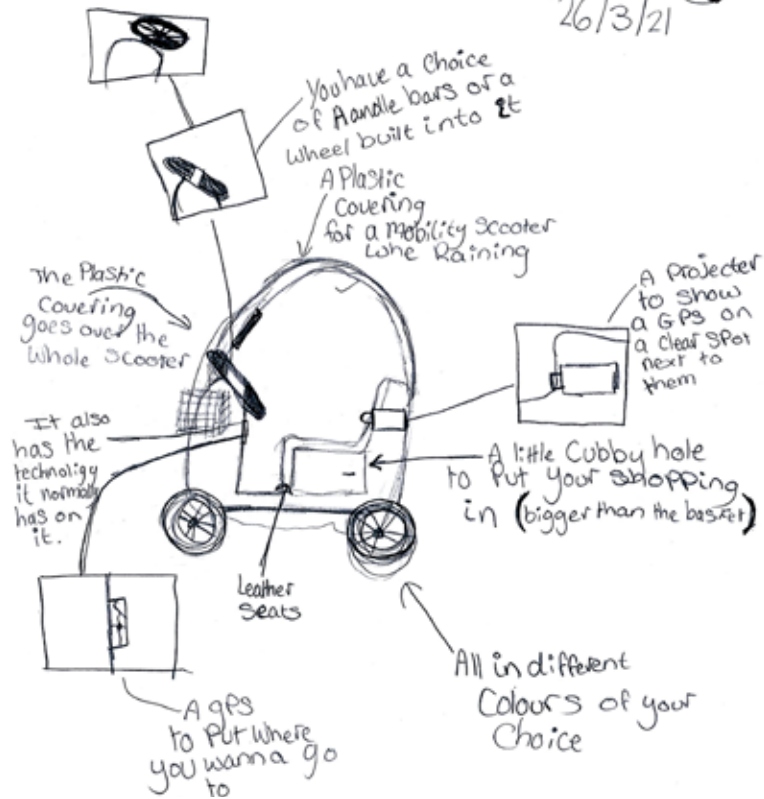 26/3/21
You have a Choice
of Aandle bars or a
wheel built into it
A Plastic
Covering
for a Mobility Scooter
whe Raining
The Plastic
Covering
goes over the
Whole Scooter
A Projecter
to show
a GPS on
a Clear SPot
next to
them
It also
has the
technoligy
it normally
has on
it.
A little Cubby hole
to Put your shopping
in (bigger than the basket)
Leather
Seats
A gps
to Put where
you wanna go
to
All in different
Colours of your
Choice